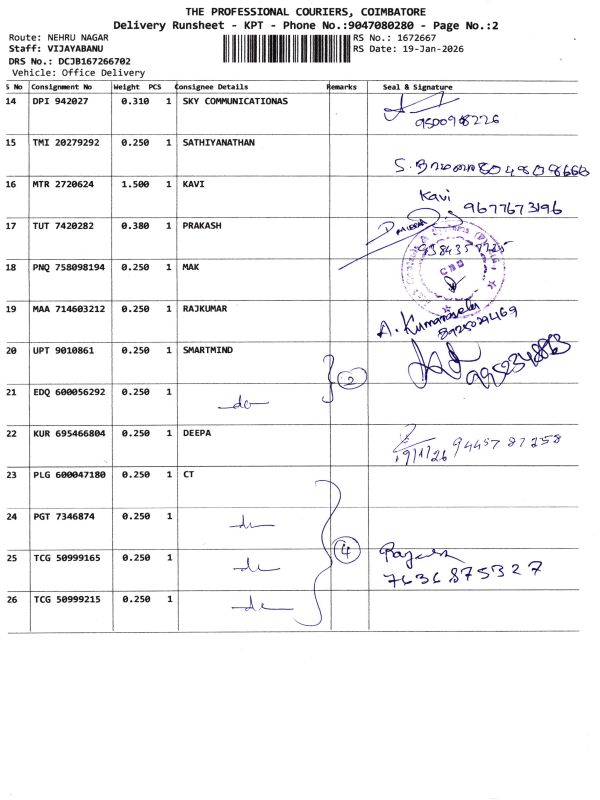 THE PROFESSIONAL COURIERS, COIMBATORE
Delivery Runsheet - KPT - Phone No.:9047080280 - Page No.:2
Route: NEHRU NAGAR RS No.: 1672667
Staff: VIJAYABANU RS Date: 19-Jan-2026
DRS No.: DCJB167266702
Vehicle: Office Delivery
S No Consignment No Weight PCS Consignee Details Remarks Seal & Signature
14 DPI 942027 0.310 1 SKY COMMUNICATIONAS
9500998226
15 TMI 20279292 0.250 1 SATHIYANATHAN
16 MTR 2720624 1.500 1 KAVI
Kavi
9677673196
17 TUT 7420282 0.380 1 PRAKASH
18 PNQ 758098194 0.250 1 MAK
19 MAA 714603212 0.250 1 RAJKUMAR
A. Kumaravelu
8925029469
20 UPT 9010861 0.250 1 SMARTMIND
2
21 EDQ 600056292 0.250 1 do
22 KUR 695466804 0.250 1 DEEPA
19/1/26 9445787258
23 PLG 600047180 0.250 1 CT
24 PGT 7346874 0.250 1
4
25 TCG 50999165 0.250 1
7636875327
26 TCG 50999215 0.250 1